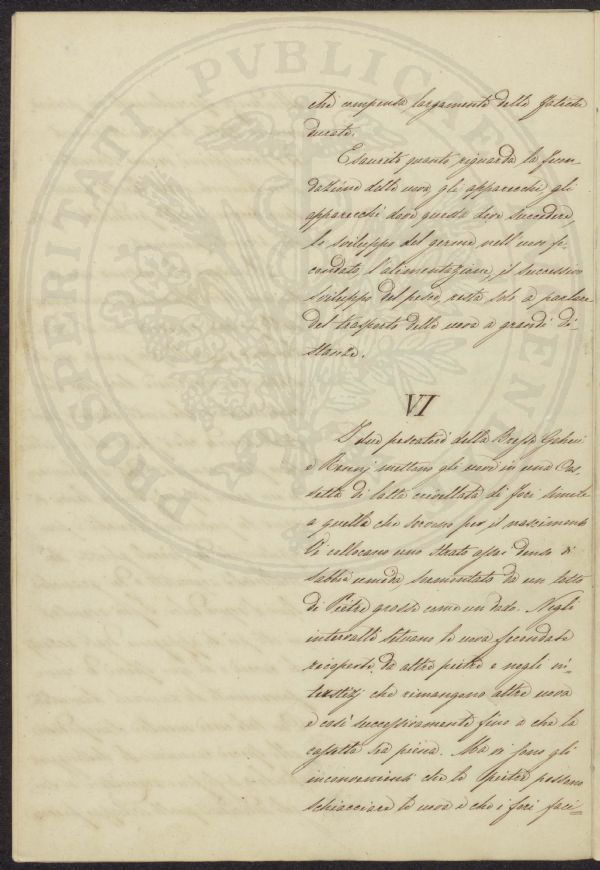 che compensa largamente delle fatiche
durate.
Esaurito quanto riguarda la fecon-
dazione delle uova, gli apparecchi gli
apparecchi dove questa deve succedere,
lo sviluppo del germe nell'uovo fe-
condato, l'alimentazione, il successivo
sviluppo del pesce, resta solo a parlare
del trasporto delle uova a grandi di-
stanze.
VI
I due pescatori della Bresse Gehin
e Remy mettono gli uovi in una Cas-
setta di latta crivellata di fori simile
a quella che serviva per il nascimento
Vi collocano uno strato assai denso di
sabbia umida, sormontato da un letto
di Pietre grosse come un dado. Negli
intervalli situano le uova fecondate
ricoperte da altre pietre e negli in-
terstizj che rimangono altre uova
e così successivamente fino a che la
cassetta sia piena. Ma vi sono gli
inconvenienti che le pietre possono
schiacciare le uova e che i fori faci=
PROSPERITATI PVBLICAE